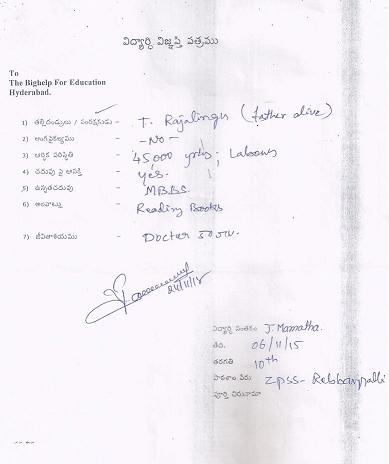 విద్యార్థి విజ్ఞప్తి పత్రము
To
The Bighelp For Education
Hyderabad.
1) తల్లిదండ్రులు / సంరక్షకుడు - T. Rajalingu (father alive)
2) అంగవైకల్యము - -No-
3) ఆర్థిక పరిస్థితి - 45000 yrly; Labour
4) చదువు పై ఆసక్తి - yes.
5) ఉన్నతచదువు - M.B.B.S.
6) అలవాట్లు - Reading Books
7) జీవితాశయము - Doctor కావాల
24/11/15
విద్యార్థి సంతకం J. Mamatha.
తేది. 06/11/15
తరగతి 10th
పాఠశాల పేరు ZPSS- Rebbanpalli
పూర్తి చిరునామా